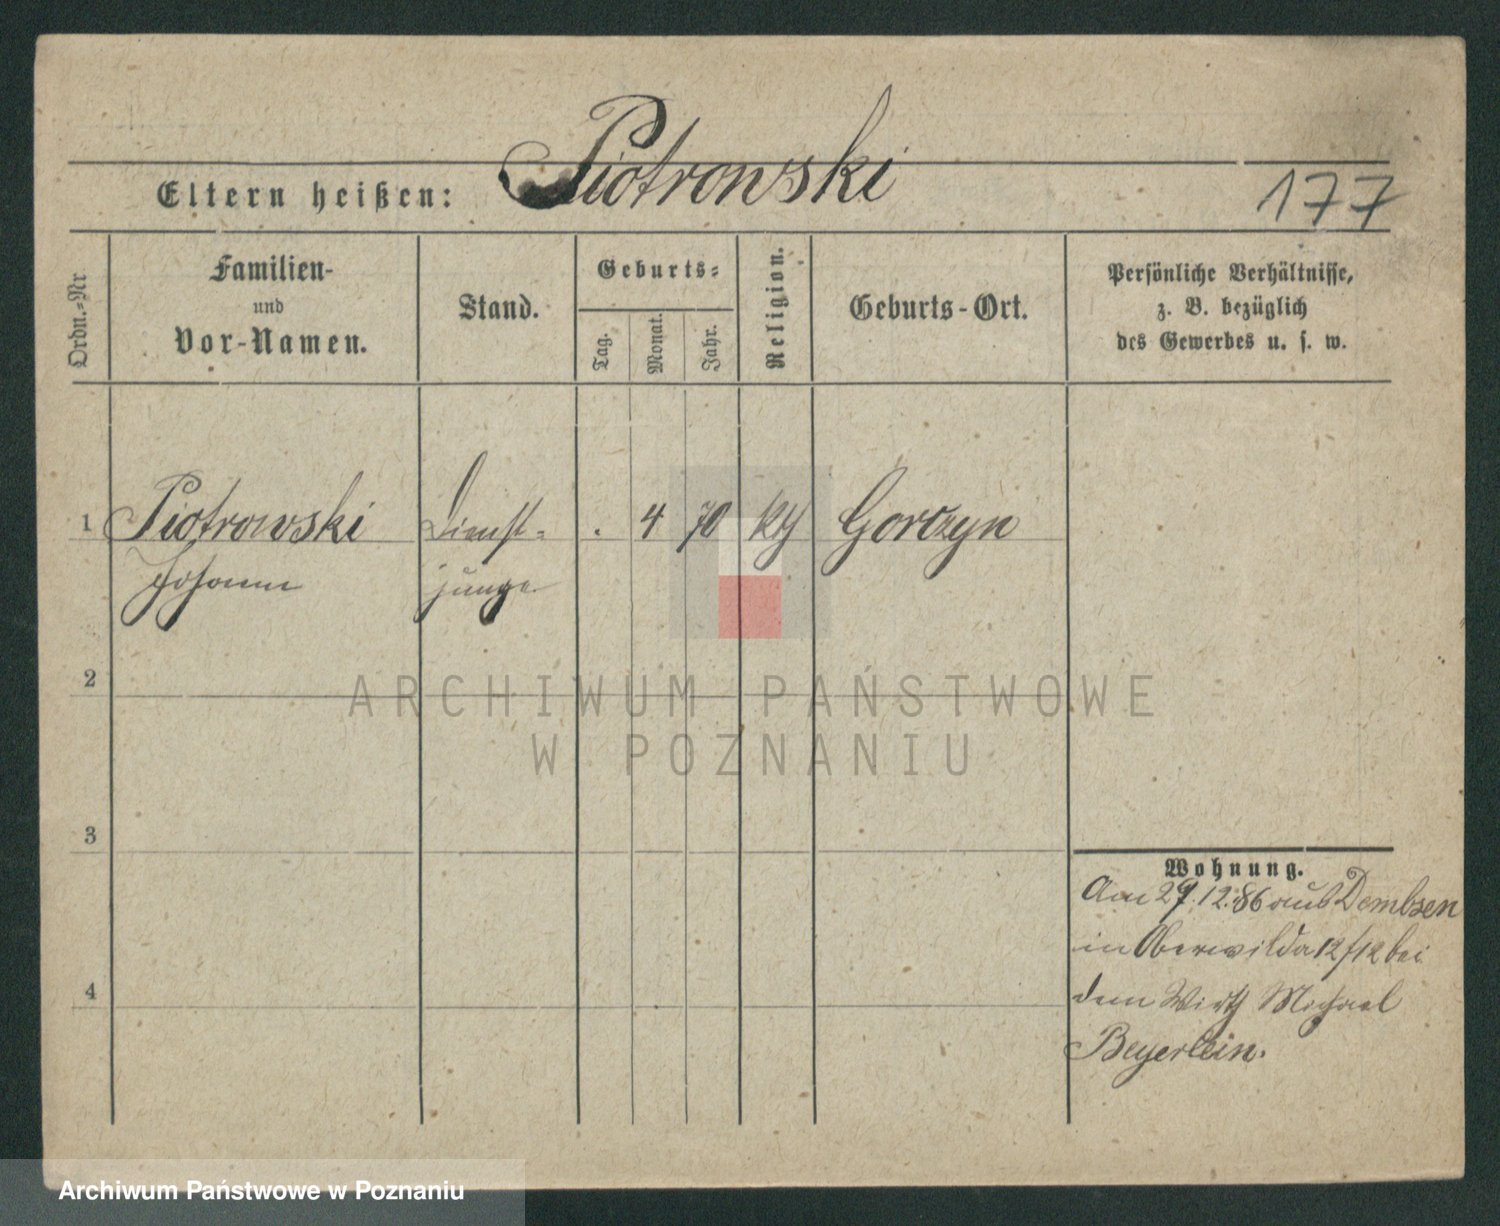 Piotrowski
Eltern heißen:
177
Ordn.-Nr
Familien-
und
Vor-Namen.
Stand.
Geburts-
Tag.
Monat.
Jahr.
Religion.
Geburts-Ort.
Persönliche Verhältnisse,
z. B. bezüglich
des Gewerbes u. s. w.
1 Piotrowski Dienst- . 4 70 kth Gorczyn
Johann junge
2
ARCHIWUM PAŃSTWOWE
W POZNANIU
3
Wohnung.
Am 29.12.86 aus Dembsen
in Oberwilda 12/12 bei
4
dem Wirth Michael
Beyerlein.
Archiwum Państwowe w Poznaniu